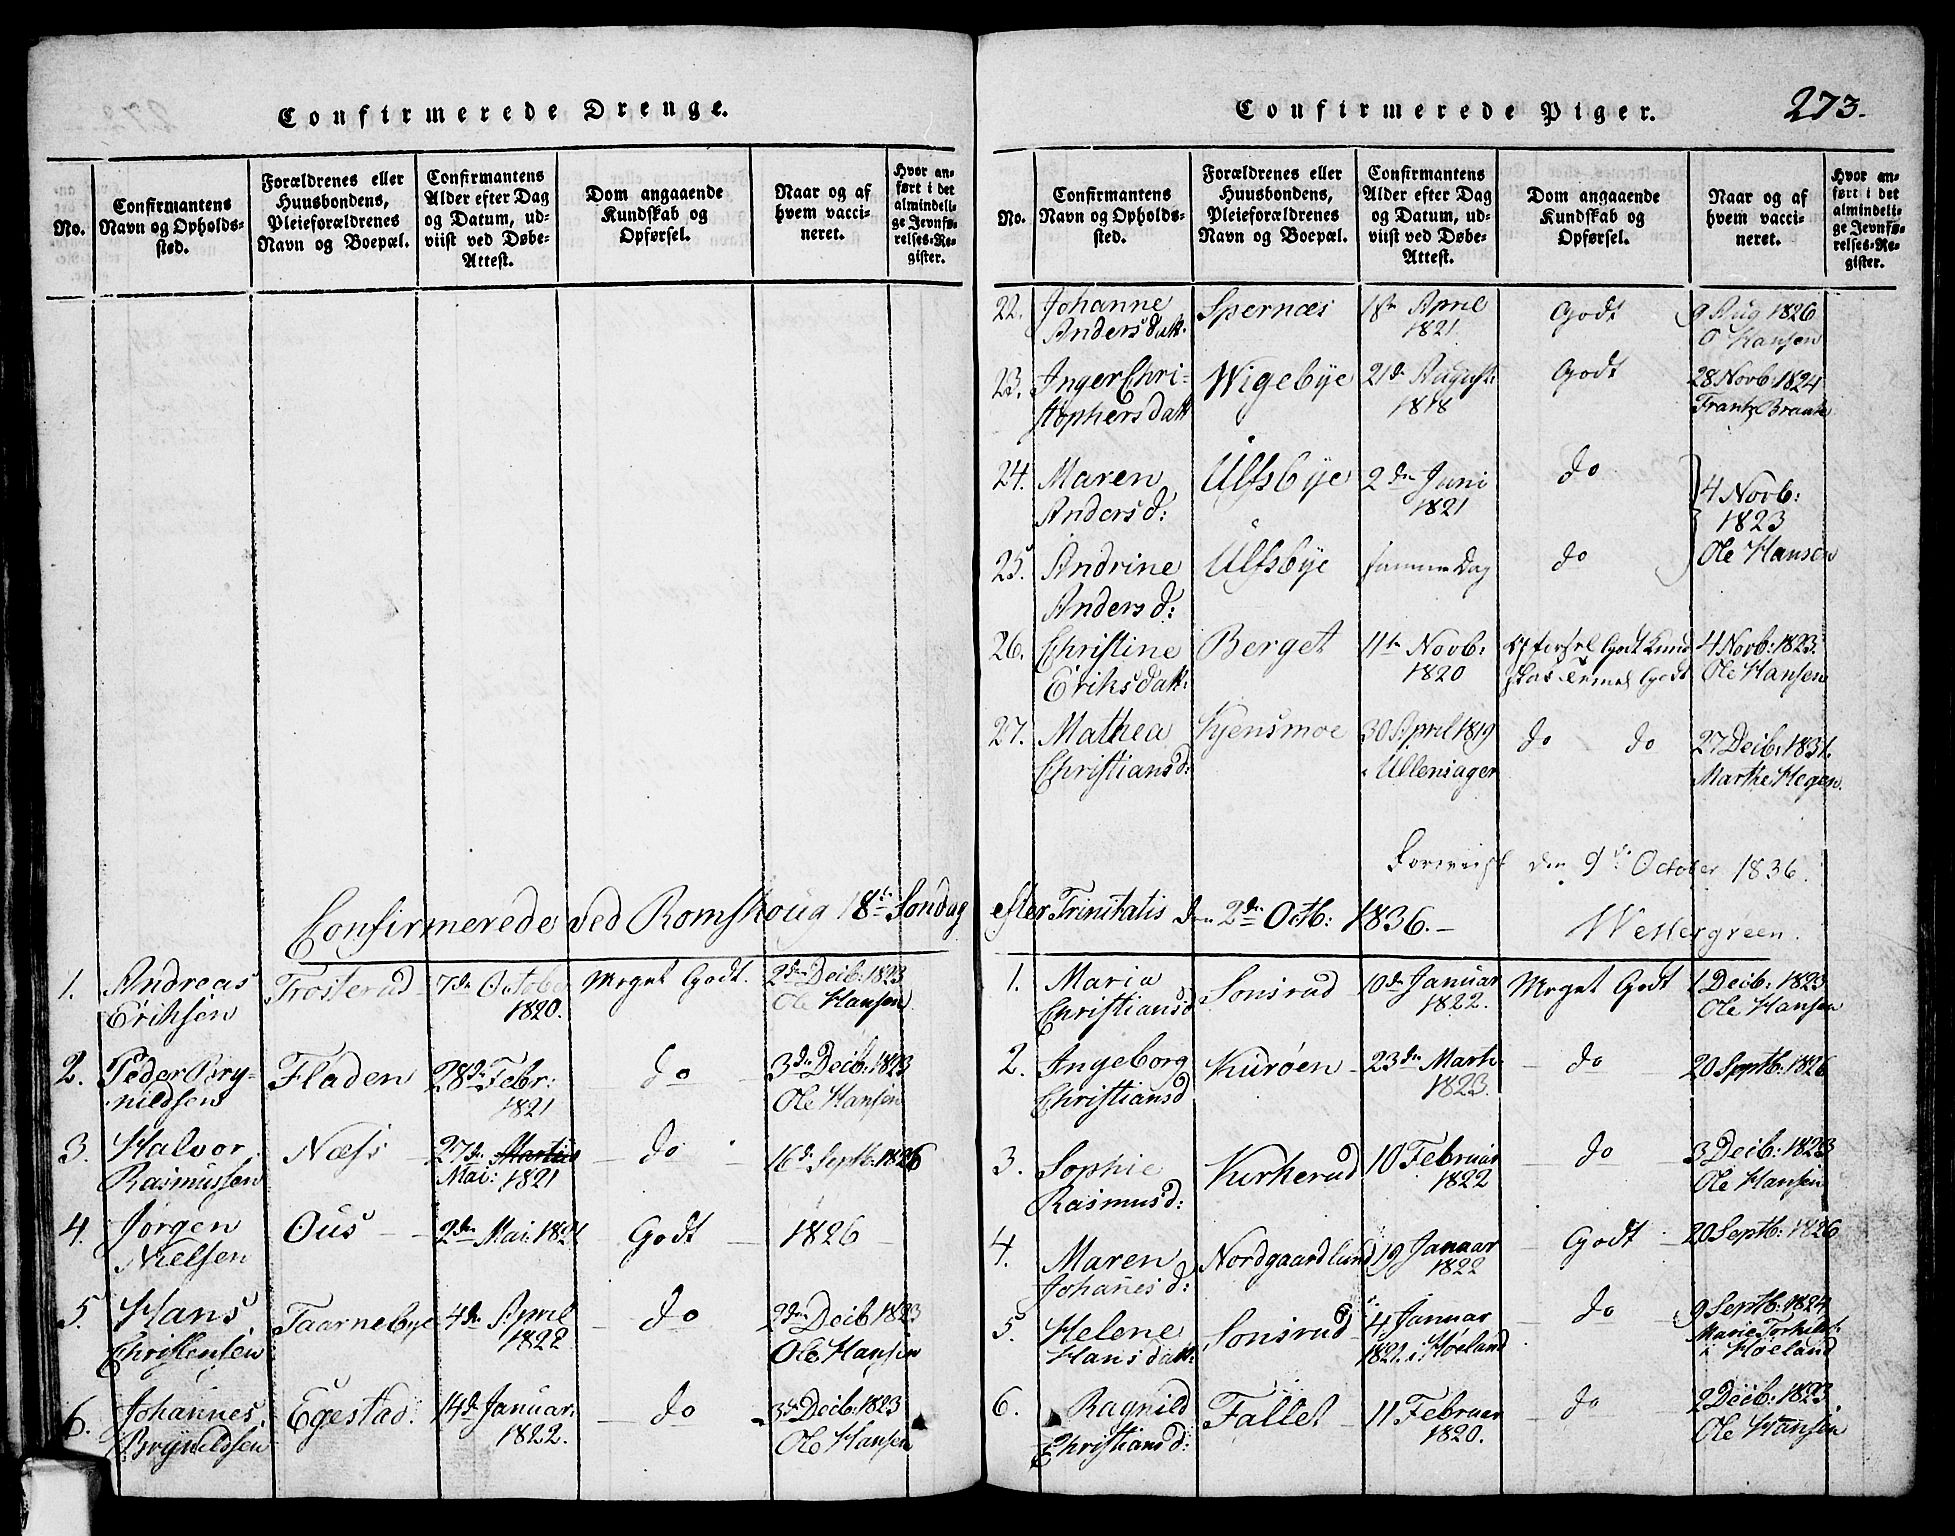 Confirmerede Drenge.
No.
Confirmantens
Navn og Opholds-
sted.
Forældrenes eller
Huusbondens,
Pleieforældrenes
Navn og Boepæl.
Confirmantens
Alder efter Dag
og Datum, ud-
viist ved Døbe-
Attest.
Dom angaaende
Kundskab og
Opførsel.
Naar og af
hvem vacci-
neret.
Hvor an-
ført i det
almindeli-
ge Jevnfø-
relses-Re-
gister.
Confirmerede ved Romskoug 18de Søndag
1. Andreas Trosterud 7de Octobr Meget Godt. 2den Decb: 1823
Eriksen 1820. Ole Hansen
2. Peder Bry- Fladen 28de Febr: do 3de Decb: 1823
nildsen 1821 Ole Hansen
3. Halvor Næss 27de Martius do 16d. Septb. 1826
Rasmussen Mai: 1821
4. Jørgen Ous 2den Mai. 1821 Godt 1826
Nielsen
5. Hans Taarnebye 4de April do 2den Decb 1823
Christensen 1822 Ole Hansen
6. Johannes Egestad 14d. Januar: do 3d Decb: 1823
Brynildsen 1822. Ole Hansen
Confirmerede Piger. 273.
No.
Confirmantens
Navn og Opholds-
sted.
Forældrenes eller
Huusbondens,
Pleieforældrenes
Navn og Boepæl.
Confirmantens
Alder efter Dag
og Datum, ud-
viist ved Døbe-
Attest.
Dom angaaende
Kundskab og
Opførsel.
Naar og af
hvem vacci-
neret.
Hvor an-
ført i det
almindeli-
ge Jevnfø-
relses-Re-
gister.
22. Johanne Spernæs 18de April Godt 9 Aug 1826
Andersdatt. 1821 O Hansen
23. Inger Chri- Wigebye 21de August Godt 28 Novb: 1824
stophersdatt 1818 Frantz Braate
24. Maren Ulfsbye 2den Juni do 4 Novb:
Andersd: 1821 1823
25. Andrine Ulfsbye samme Dag do Ole Hansen
Andersd:
26. Christine Berget 11te Novb: Opførsel Godt Kund 4 Novb: 1823.
Eriksdatt: 1820 skab Godt Ole Hansen
27. Mathea Kjensmoe 30 April 1819 do do 27 Decb: 1831.
Christiansd: i Ullensager Marthe Hegen.
den 9de October 1836.
efter Trinitatis den 2den Octb: 1836.- Westergreen.
1. Maria Sonsrud 10de Januar Meget Godt 1 Decb: 1823
Christiansd 1822. Ole Hansen
2. Ingeborg Kurøen 23de Marts do 20 Septb: 1826
Christiansd 1823.
3. Sophie Kirkerud 10 Februar do 3 Decb: 1823
Rasmusd: 1822 Ole Hansen
4. Maren Nordgaardlund 19 Januar Godt 20 Septb: 1826
Johañesd: 1822
5. Helene Sonsrud 4 Januar do 9 Septb: 1824
Hansdatt: 1821. i Høeland Marie Torkilds:
i Høeland
6. Ragnild Fallet 11 Februar do 2 Decb: 1823
Christiansd: 1820. Ole Hansen